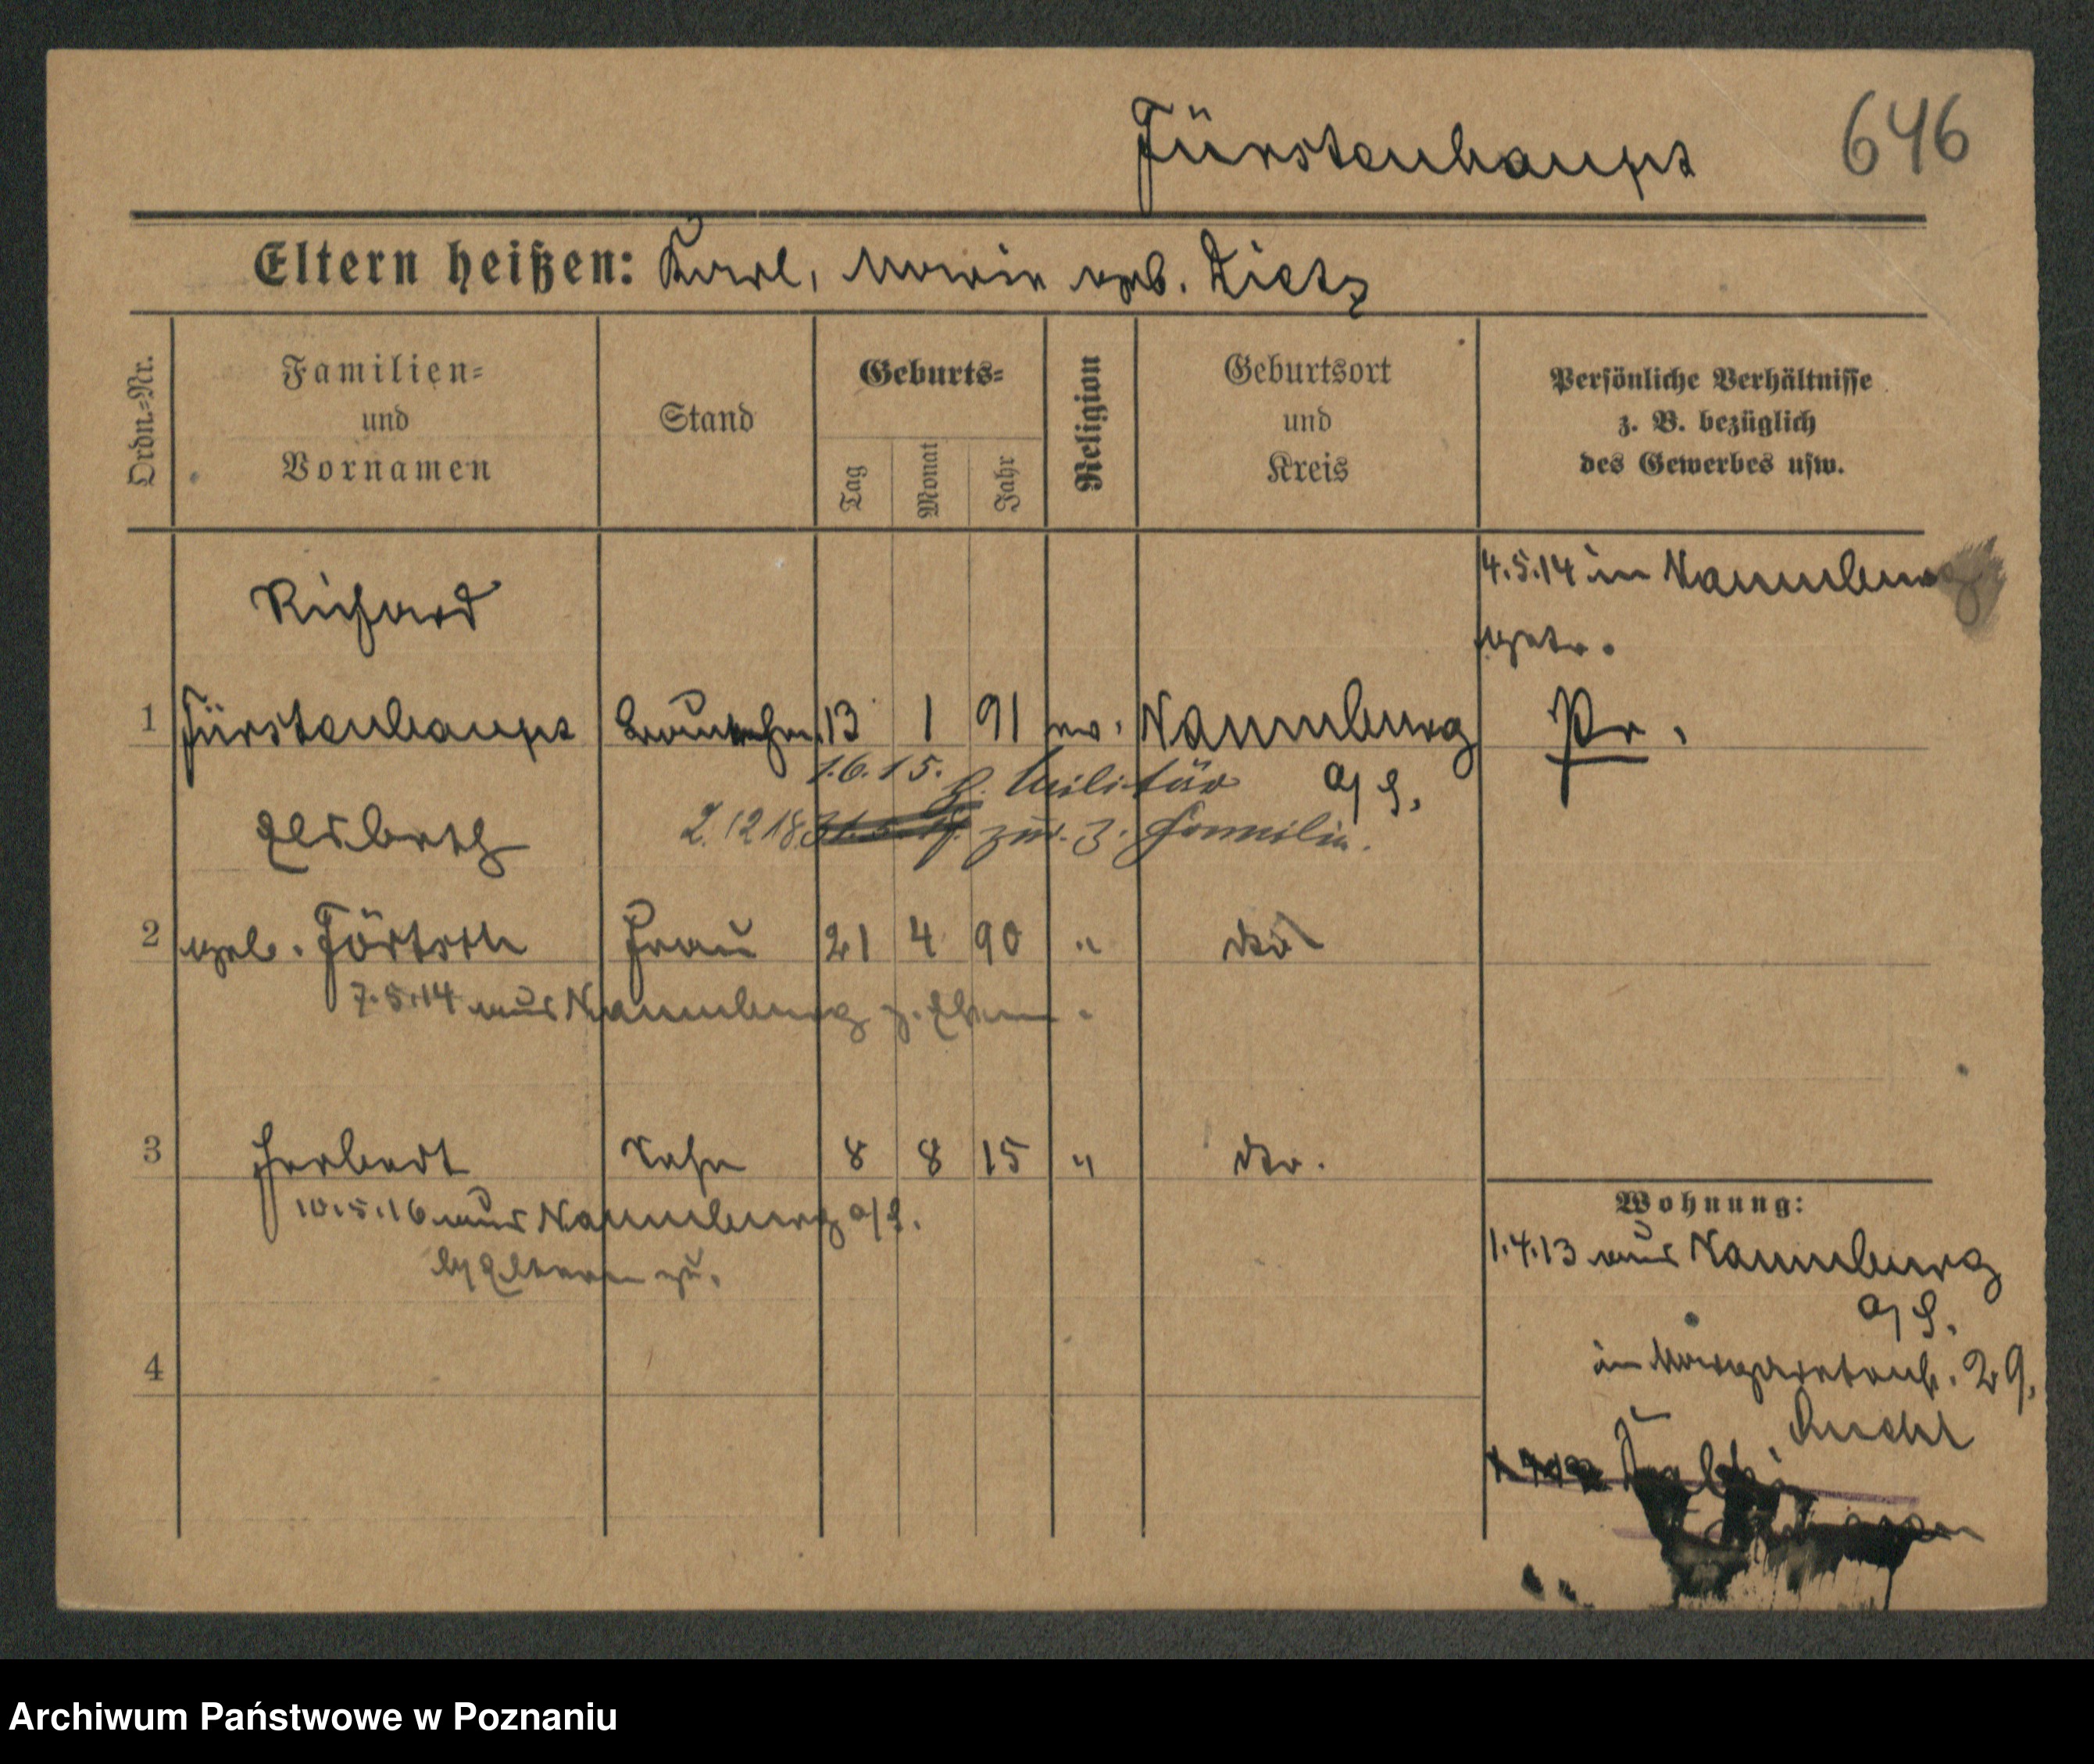 Fürstenhaupt 646
Eltern heißen: Karl, Maria geb. Dietz
Ordn.-Nr.
Familien-
und
Vornamen
Stand
Geburts-
Tag
Monat
Jahr
Religion
Geburtsort
und
Kreis
Persönliche Verhältnisse
z. B. bezüglich
des Gewerbes usw.
4.5.14 in Naumburg
getr.
Richard
1 Fürstenhaupt 13 1 91 ev. Naumburg Pr.
a/S.
1.6.15. z. Militär
2.12.18 zur. z. Familie.
Elsbeth
2 geb. Förtsch Frau 21 4 90 " dto
7.5.14 aus Naumburg z. Ehem.
3 Herbert Sohn 8 8 15 " dto.
10.5.16 aus Naumburg a/S.
b/Eltern zu.
4
Wohnung:
1.4.13 aus Naumburg
a/S.
in Margaretenstr. 29.
Archiwum Państwowe w Poznaniu